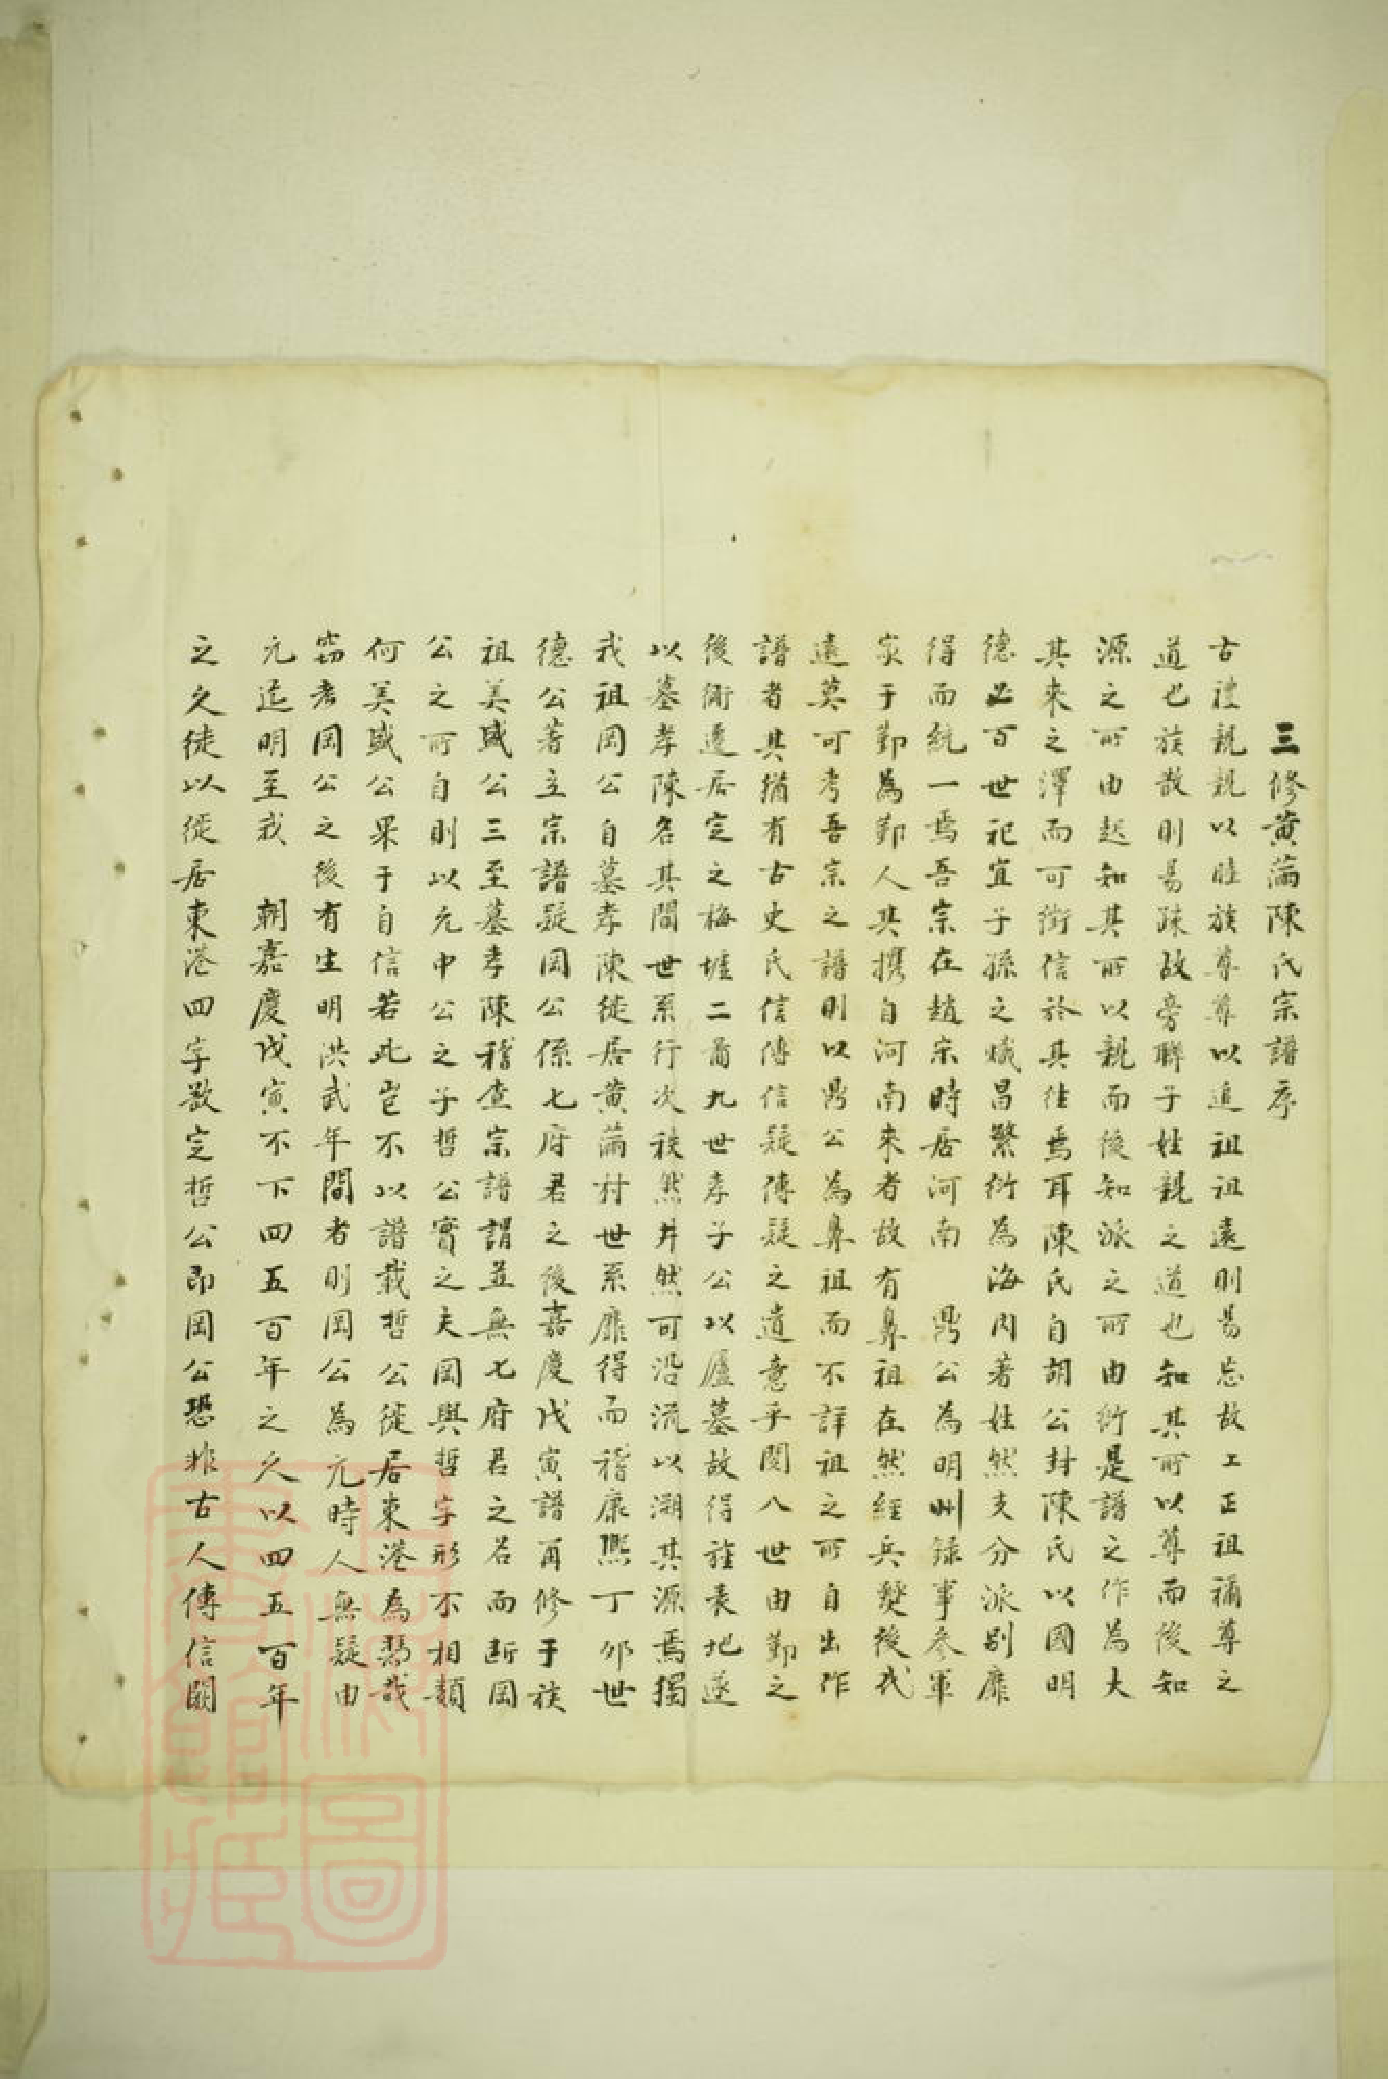 三修黃滿陳氏宗譜序
古禮親親以睦族尊尊以追祖祖遠則易忘故上正祖禰尊之
道也族散則易疎故旁聯子姓親之道也知其所以尊而後知
源之所由起知其所以親而後知派之所由衍是譜之作為大
其來之澤而可徵信於其往焉耳陳氏自胡公封陳氏以國明
德必百世祀宜子孫之熾昌繁衍為海內著姓然支分派別靡
得而統一焉吾宗在趙宋時居河南 鼎公為明州錄事參軍
家于鄞為鄞人其攜自河南來者故有鼻祖在然經兵燹後代
遠莫可考吾宗之譜則以鼎公為鼻祖而不詳祖之所自出作
譜者其猶有古史氏信傳信疑傳疑之遺意乎閱八世由鄞之
後衕遷居定之梅墟二葡九世孝子公以廬墓故得旌表地遂
以墓孝陳名其間世系行次秩然井然可沿流以溯其源焉獨
我祖岡公自墓孝陳徙居黃滿村世系靡得而稽康熙丁卯世
德公著立宗譜疑岡公係七府君之後嘉慶戊寅譜再修于族
祖美盛公三至墓孝陳稽查宗譜謂並無七府君之名而斷岡
公之所自則以元中公之子哲公實之夫岡與哲字形不相類
何美盛公果于自信若此豈不以譜載哲公徙居東港為據哉
竊考岡公之後有生明洪武年間者則岡公為元時人無疑由
元迄明至我 朝嘉慶戊寅不下四五百年之久以四五百年
之久徒以徙居東港四字斷定哲公即岡公恐非古人傳信闕